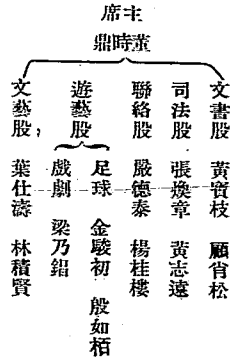 主席
董時鼎
文書股 黃寶枝 顧省松
司法股 張煥章 黃志遠
聯絡股 嚴德泰 楊桂樓
遊藝股
足球 金駿初 殷如栢
戲劇 梁乃
文藝股, 葉仕濤 林積賢